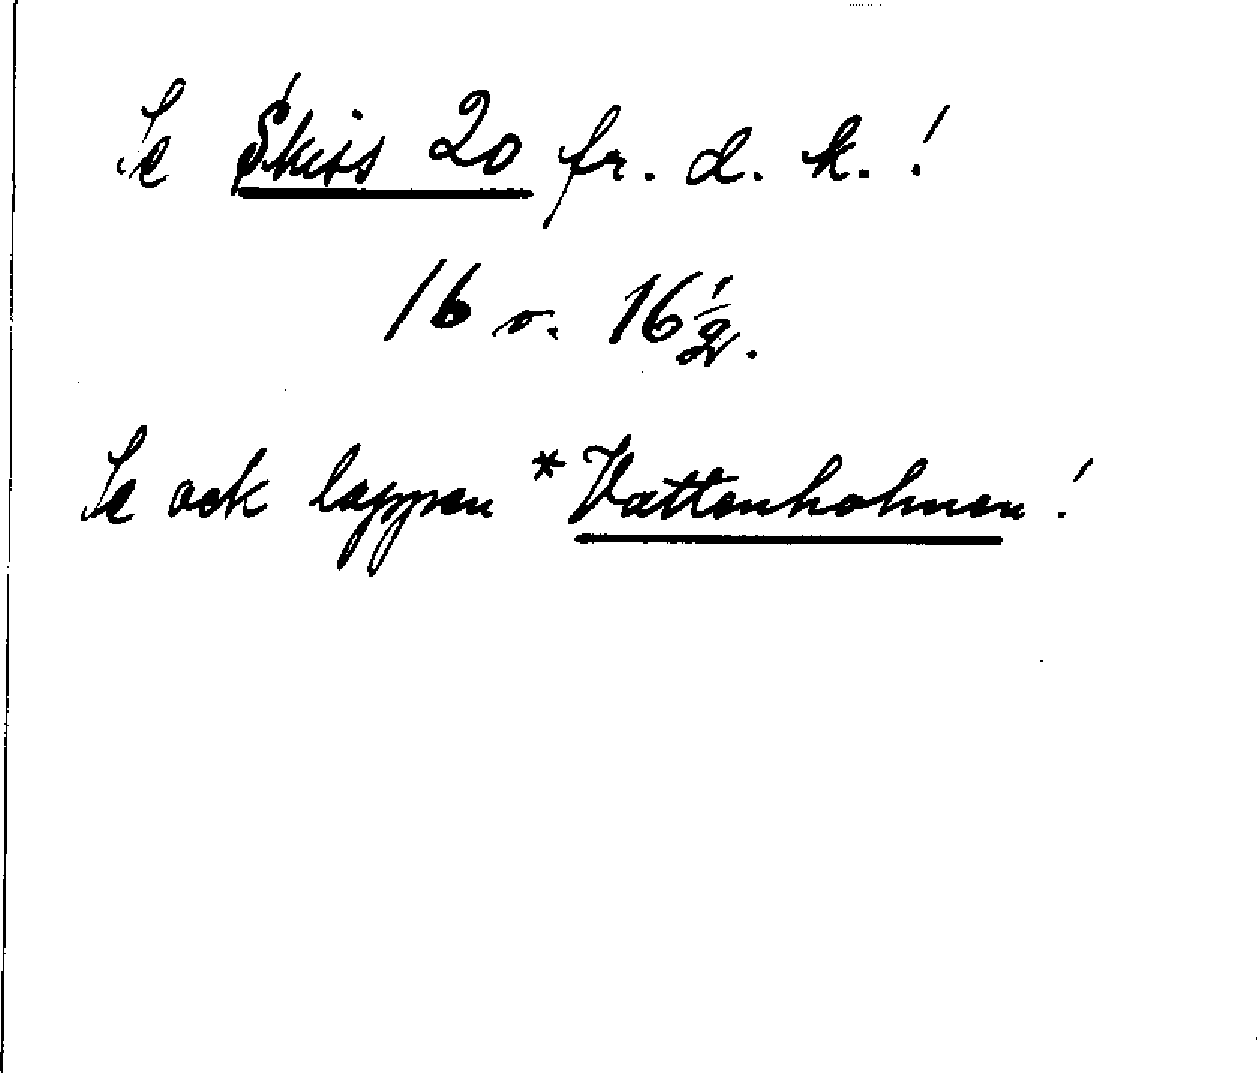 Se Skiss 20 fr. d. k. !
16 o. 16 1/2.
Se ock lappen *Vattenholmen !